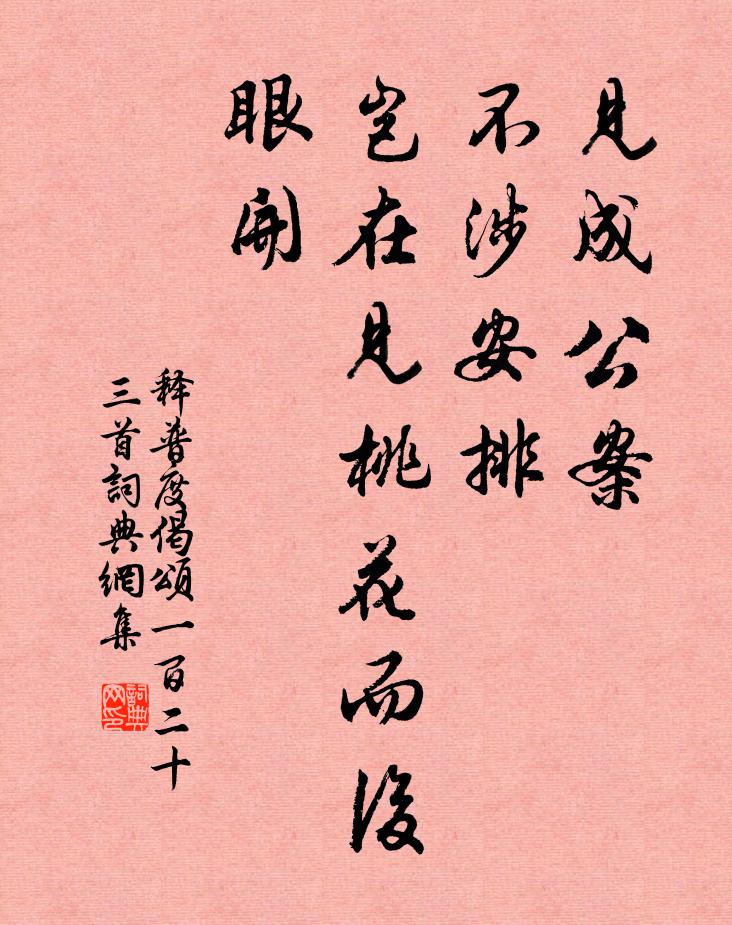 見成公案
不涉安排
豈在見桃花而後
眼開
释普度偈頌一百二十
三首詞典網集
詞典
网印